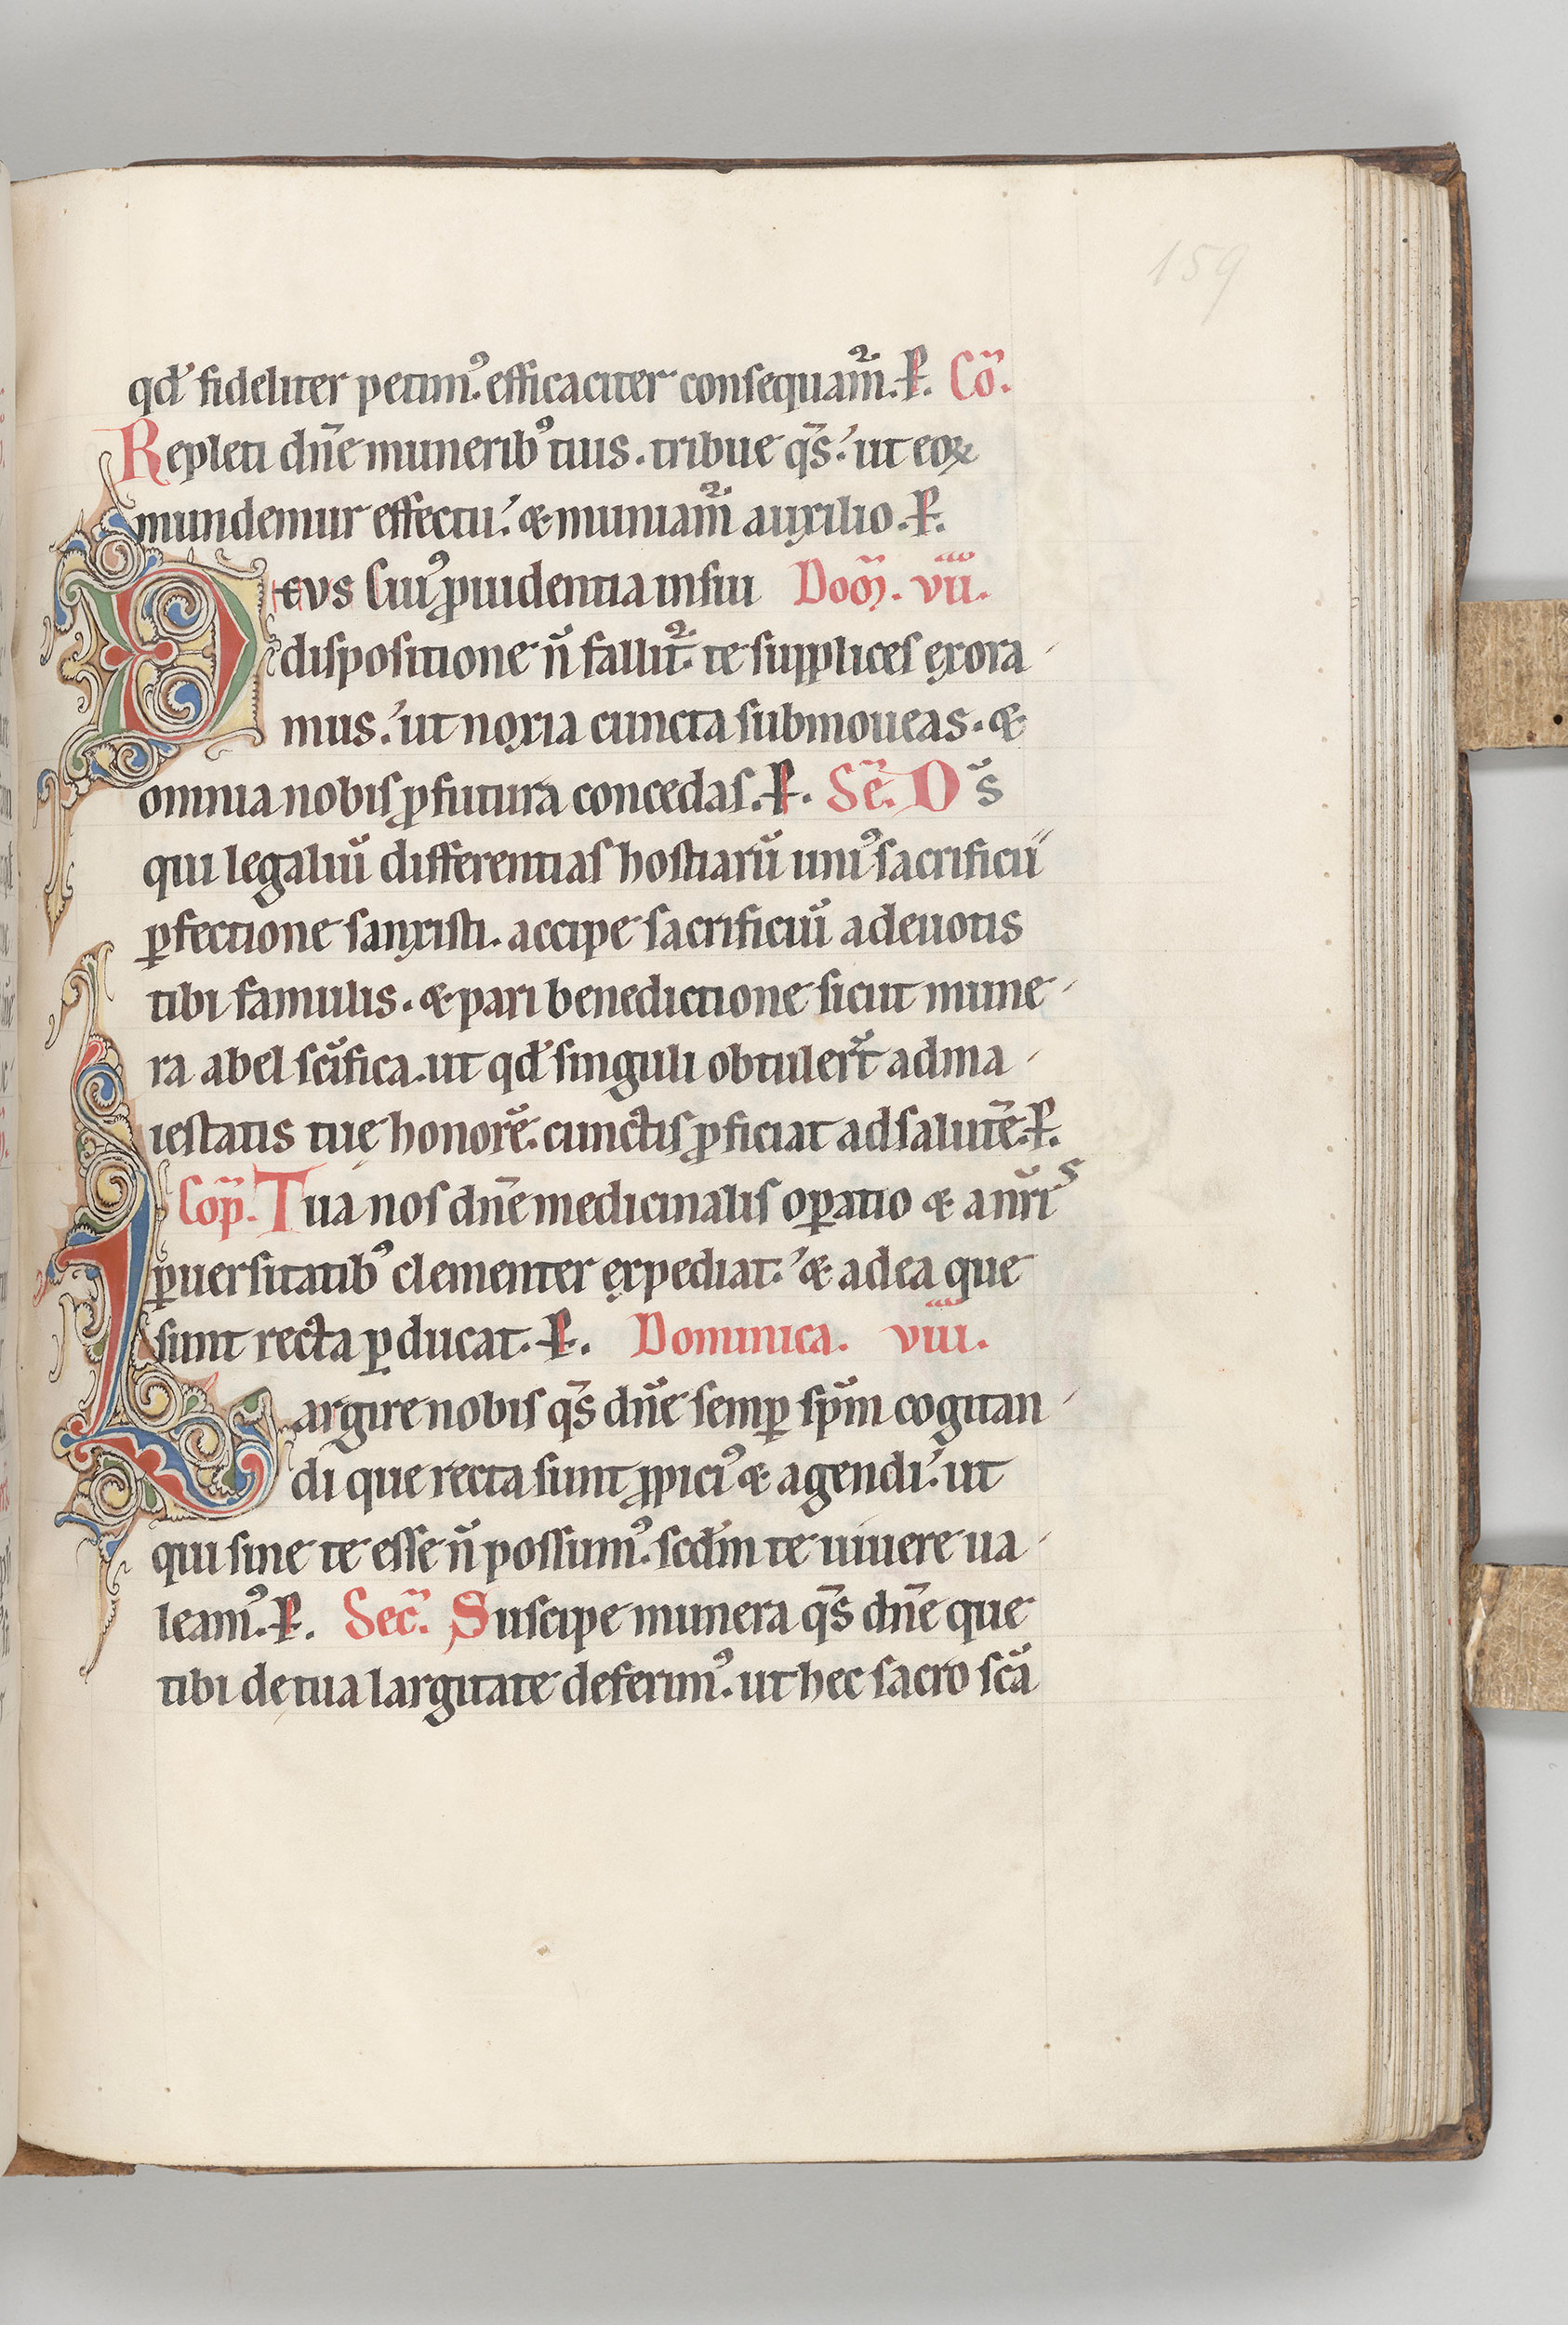 159
qđ fideliter petimꝰ. efficaciter consequam̄ᷣ. P̵. Cō.
Repleti dn̄e muneribꝰ tuis. tribue qs̄. ut eoꝝ
mundemur effectu. & muniam̄ᷣ auxilio. P̵.
Deus cuiꝰ ꝓuidentia in sui Dom̄. vii.
dispositione n̄ fallit᷑. te supplices exora-
mus. ut noxia cuncta submoueas. &
omnia nobis ꝓfutura concedas. P̵. Sec̄. Ds̄
qui legaliū differentias hostiarū uniꝰ sacrificii
ꝑfectione sanxisti. accipe sacrificiū a deuotis
tibi famulis. & pari benedictione sicut mune-
ra abel sc̄ifica. ut qđ singuli obtuler̄t ad ma-
iestatis tuę honorē. cunctis ꝓficiat ad salutē. P̵.
Cop̄. Tua nos dn̄e medicinalis oꝑatio & a nr̄is
ꝑuersitatibꝰ clementer expediat. & ad ea que
sunt recta ꝑducat. P̵. Dominica. viii.
Largire nobis qs̄ dn̄e semꝑ sp̄m cogitan-
di que recta sunt ꝓpiciꝰ & agendi. ut
qui sine te esse n̄ possumꝰ. scđm te uiuere ua-
leamꝰ. P̵. Sec̄. Suscipe munera qs̄ dn̄e que
tibi de tua largitate deferimꝰ. ut hec sacro sc̄a